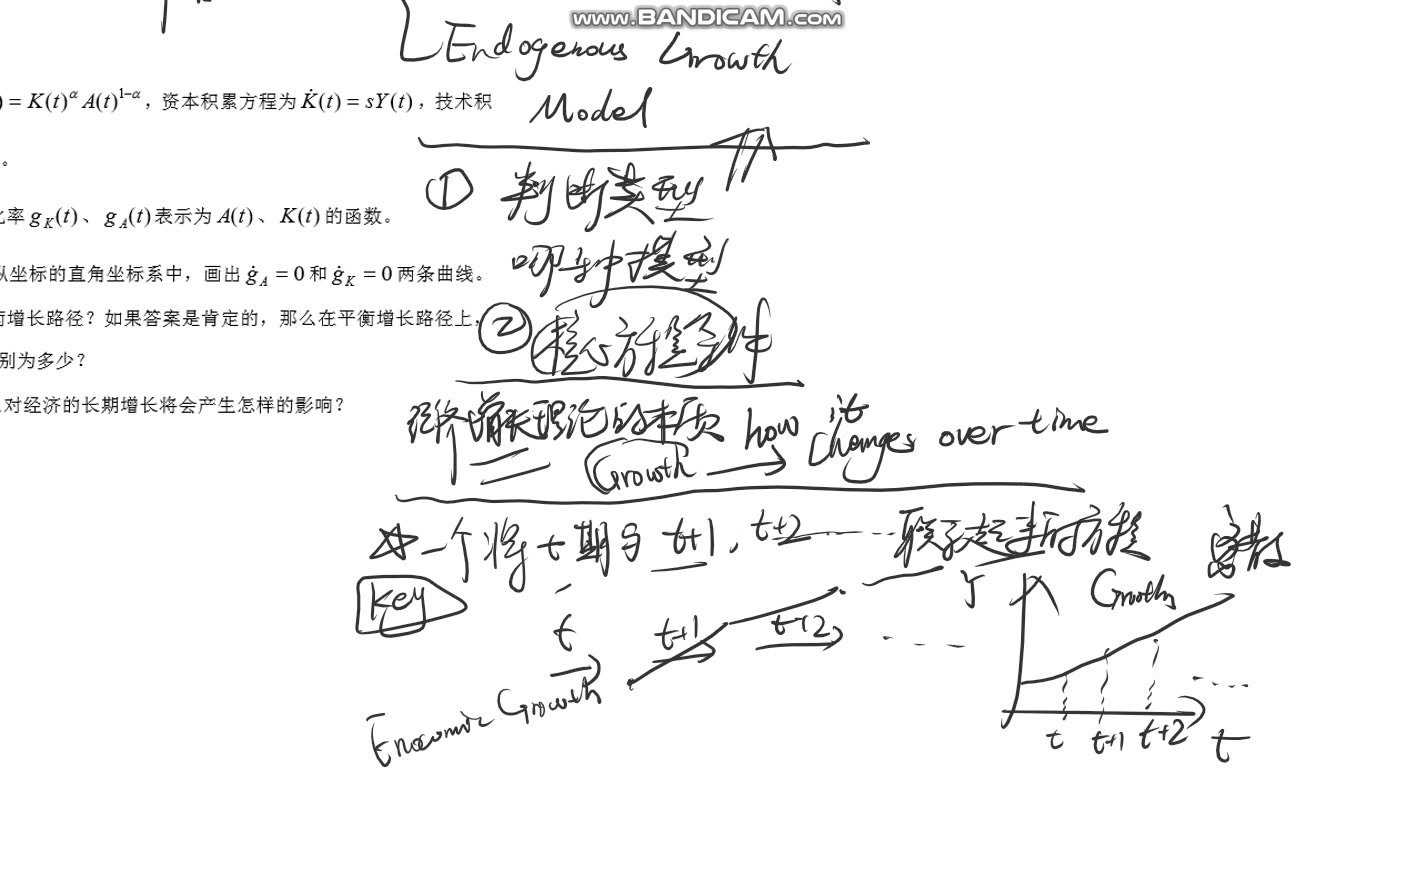 www.BANDICAM.com
Endogenous Growth
Model
) = K(t)^α A(t)^{1−α}，资本积累方程为 K̇(t) = sY(t)，技术积
。
① 判断类型
率 g_K(t)、g_A(t) 表示为 A(t)、K(t) 的函数。
哪种模型
坐标的直角坐标系中，画出 ġ_A = 0 和 ġ_K = 0 两条曲线。
增长路径？如果答案是肯定的，那么在平衡增长路径上，
② 核心方程条件
别为多少？
对经济的长期增长将会产生怎样的影响？
经济增长理论的本质 how it changes over time
Growth
☆一个将 t 期与 t+1, t+2 ...... 联系起来的方程
离散
Key
Y Growth
t t+1 t+2 ......
Enocomic Growth
t t+1 t+2 t